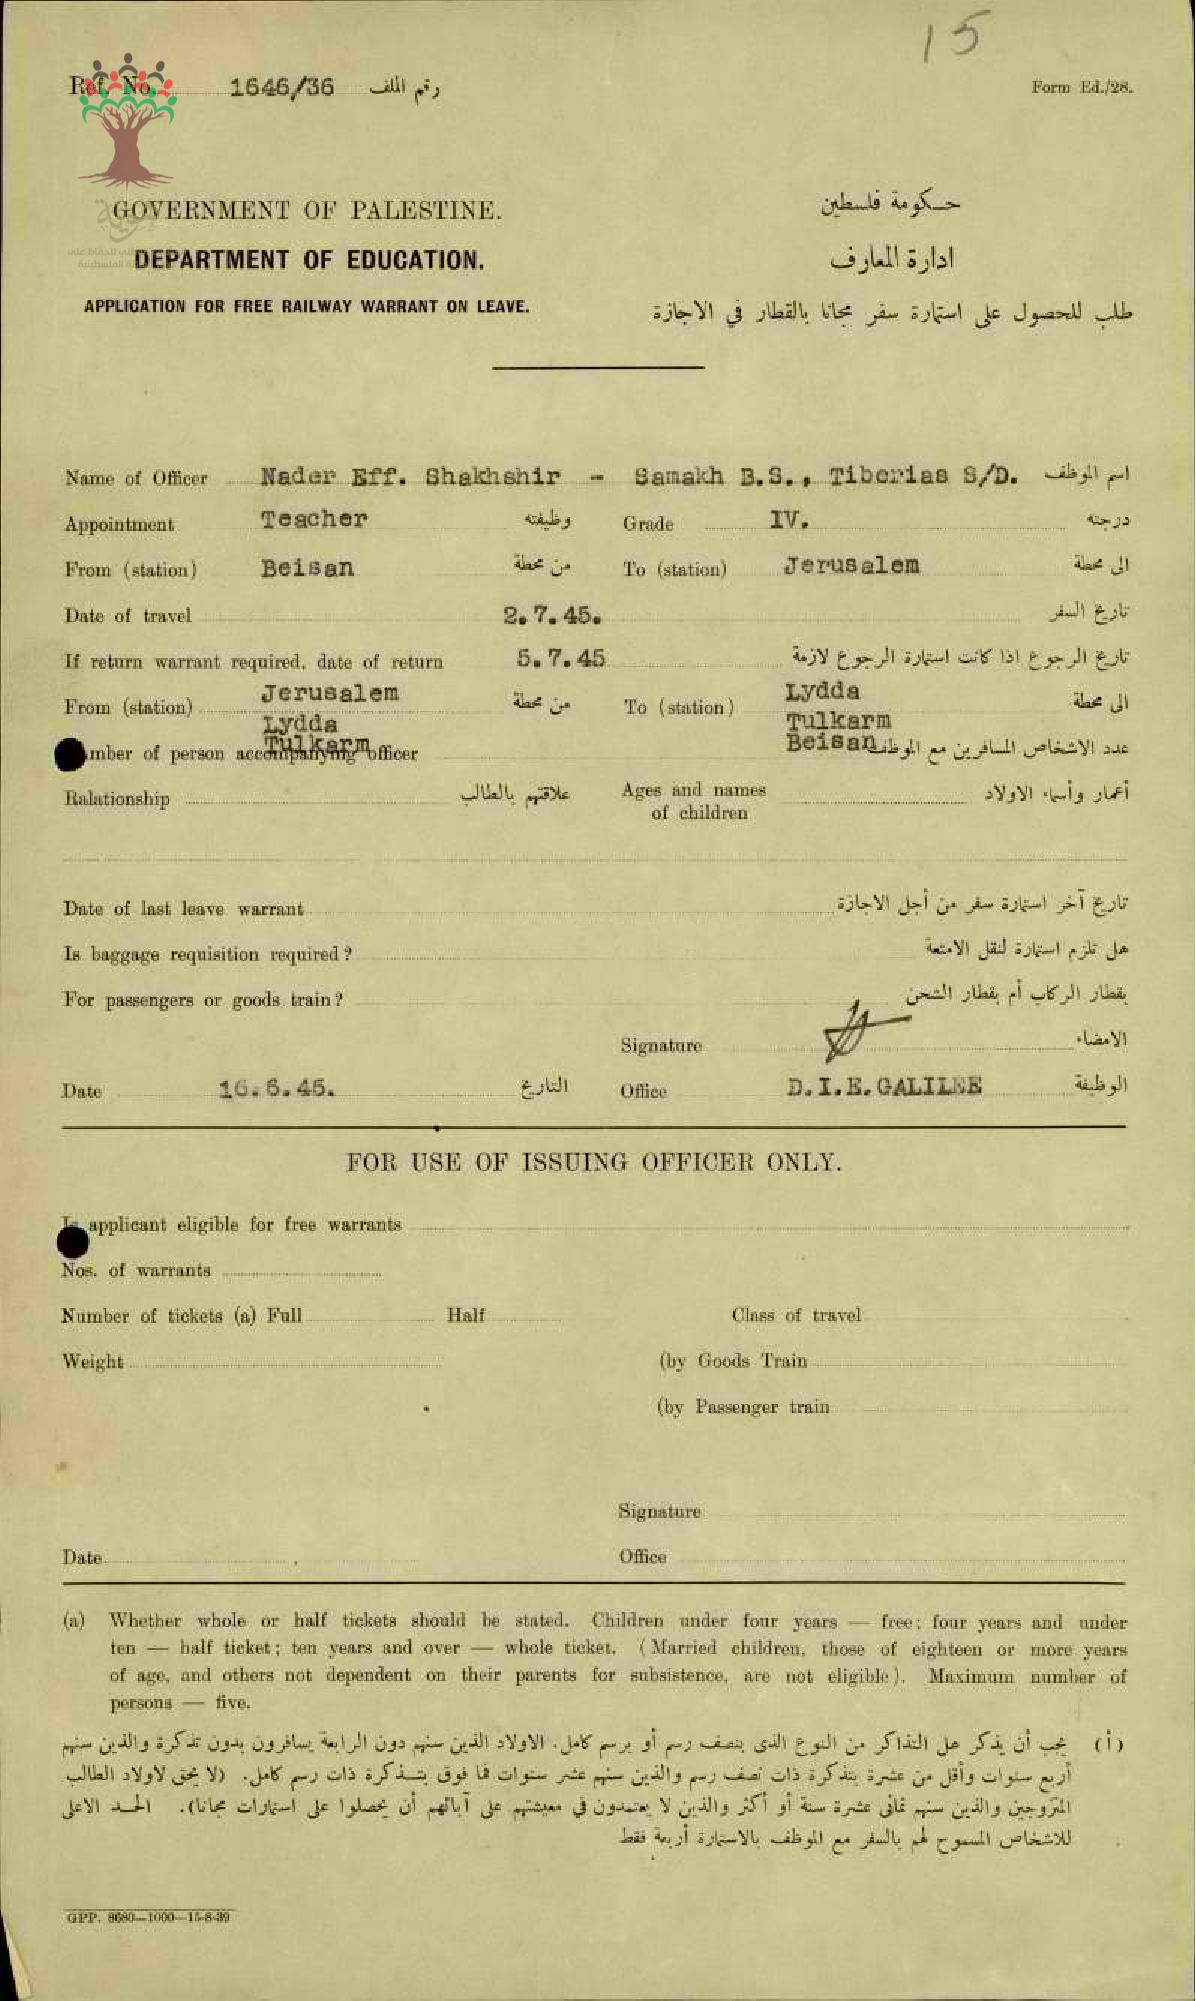 15
Ref. No. 1646/36 رقم الملف
Form Ed./28.
GOVERNMENT OF PALESTINE. حكومة فلسطين
DEPARTMENT OF EDUCATION. ادارة المعارف
APPLICATION FOR FREE RAILWAY WARRANT ON LEAVE. طلب للحصول على استمارة سفر مجانا بالقطار في الاجازة
Name of Officer Nader Eff. Shakhshir - Samakh B.S., Tiberias S/D. اسم الموظف
Appointment Teacher وظيفته Grade IV. درجته
From (station) Beisan من محطة To (station) Jerusalem الى محطة
Date of travel 2.7.45. تاريخ السفر
If return warrant required, date of return 5.7.45 تاريخ الرجوع اذا كانت استمارة الرجوع لازمة
From (station) Jerusalem من محطة To (station) Lydda الى محطة
Lydda Tulkarm
mber of person accompanying officer Tulkarm Beisan عدد الاشخاص المسافرين مع الموظف
Ralationship علاقتهم بالطالب Ages and names أعمار وأسماء الاولاد
of children
Date of last leave warrant تاريخ آخر استمارة سفر من أجل الاجازة
Is baggage requisition required? هل تلزم استمارة لنقل الامتعة
For passengers or goods train? بقطار الركاب أم بقطار الشحن
Signature الامضاء
Date 16.6.45. التاريخ Office D.I.E.GALILEE الوظيفة
FOR USE OF ISSUING OFFICER ONLY.
Is applicant eligible for free warrants
Nos. of warrants
Number of tickets (a) Full Half Class of travel
Weight (by Goods Train
(by Passenger train
Signature
Date Office
(a) Whether whole or half tickets should be stated. Children under four years — free; four years and under
ten — half ticket; ten years and over — whole ticket. (Married children, those of eighteen or more years
of age, and others not dependent on their parents for subsistence, are not eligible). Maximum number of
persons — five.
(أ) يجب أن يذكر هل التذاكر من النوع الذي بنصف رسم أو برسم كامل. الاولاد الذين سنهم دون الرابعة يسافرون بدون تذكرة والذين سنهم
أربع سنوات وأقل من عشرة بتذكرة ذات نصف رسم والذين سنهم عشر سنوات فما فوق بتذكرة ذات رسم كامل. (لا يحق لاولاد الطالب
المتزوجين والذين سنهم ثماني عشرة سنة أو أكثر والذين لا يعتمدون في معيشتهم على آبائهم أن يحصلوا على استمارات مجانا). الحد الاعلى
للاشخاص المسموح لهم بالسفر مع الموظف بالاستمارة أربعة فقط
GPP. 8680—1000—15-8-39